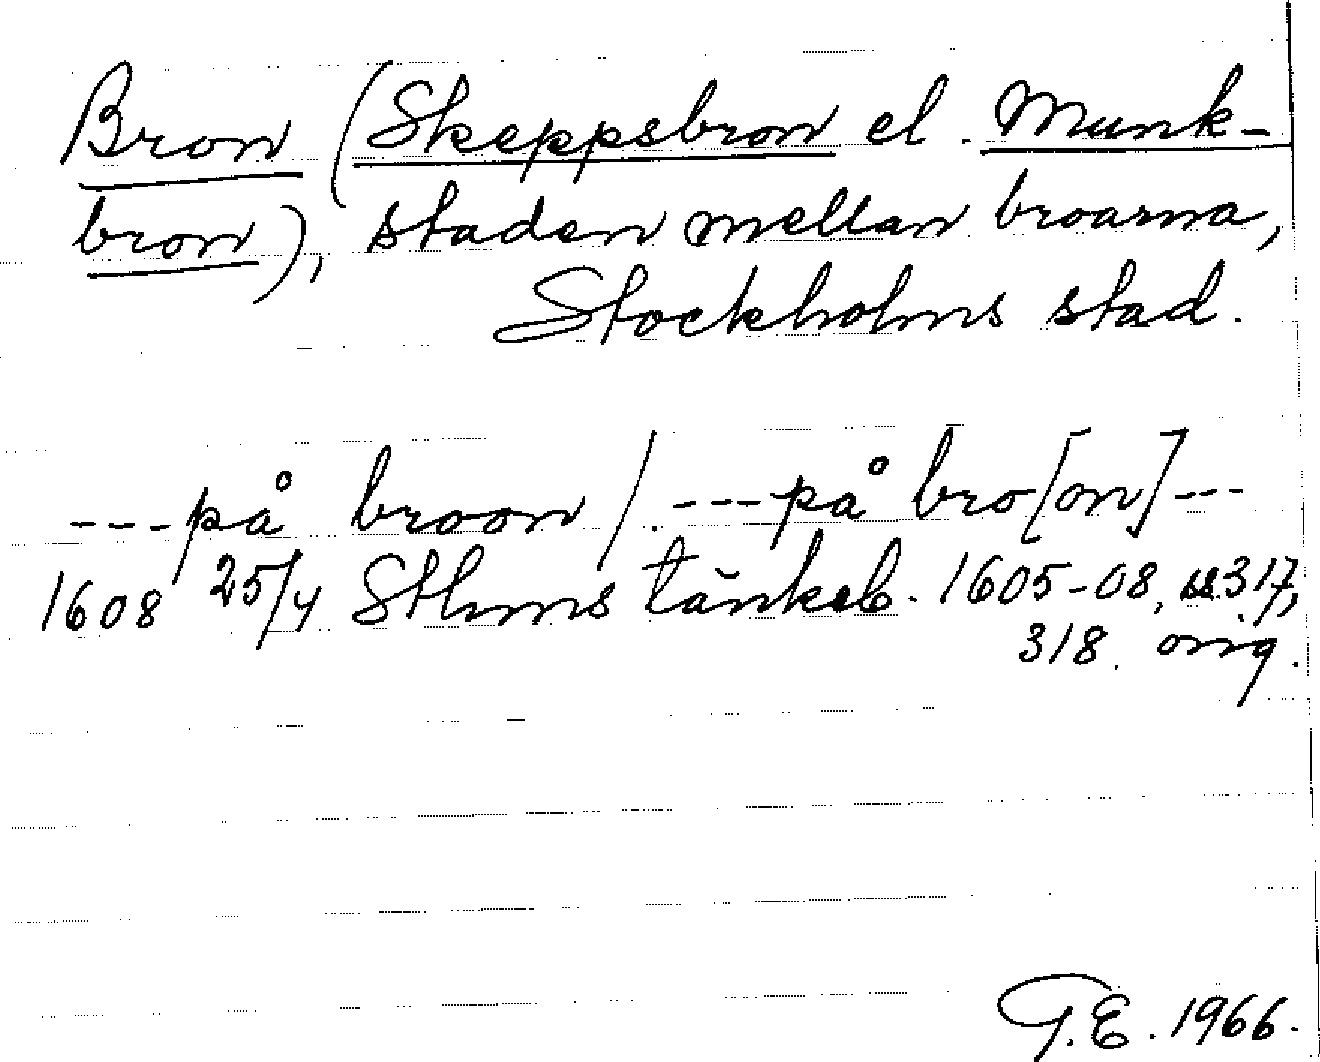 Bron (Skeppsbron el. Munk-
bron), staden mellan broarna,
Stockholms stad.
---på broon /. ---på bro[on]---
1608 25/4 Sthms tänkeb. 1605-08, ss. 317,
318. orig.
G.E. 1966.